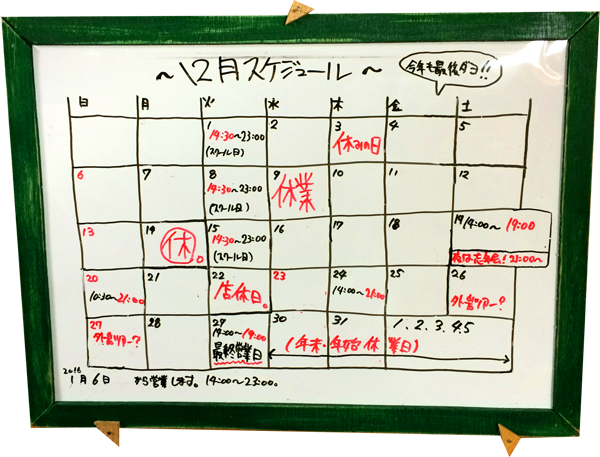 ～12月スケジュール～
今年も最後ダヨ!!
日 月 火 水 木 金 土
1 2 3 4 5
14:30～23:00
(スクール日)
休みの日
6 7 8 9 10 11 12
14:30～23:00
(スクール日)
休業
13 14 15 16 17 18 19
休。
14:30～23:00
(スクール日)
14:00～19:00
夜は忘年会! 21:00～
20 21 22 23 24 25 26
10:30～21:00
店休日。
14:00～21:00
外岩ツアー?
27 28 29 30 31 1.2.3.4.5
外岩ツアー?
14:00～19:00
最終営業日
(年末・年始休業日)
2016
1月6日 から営業します。14:00～23:00.